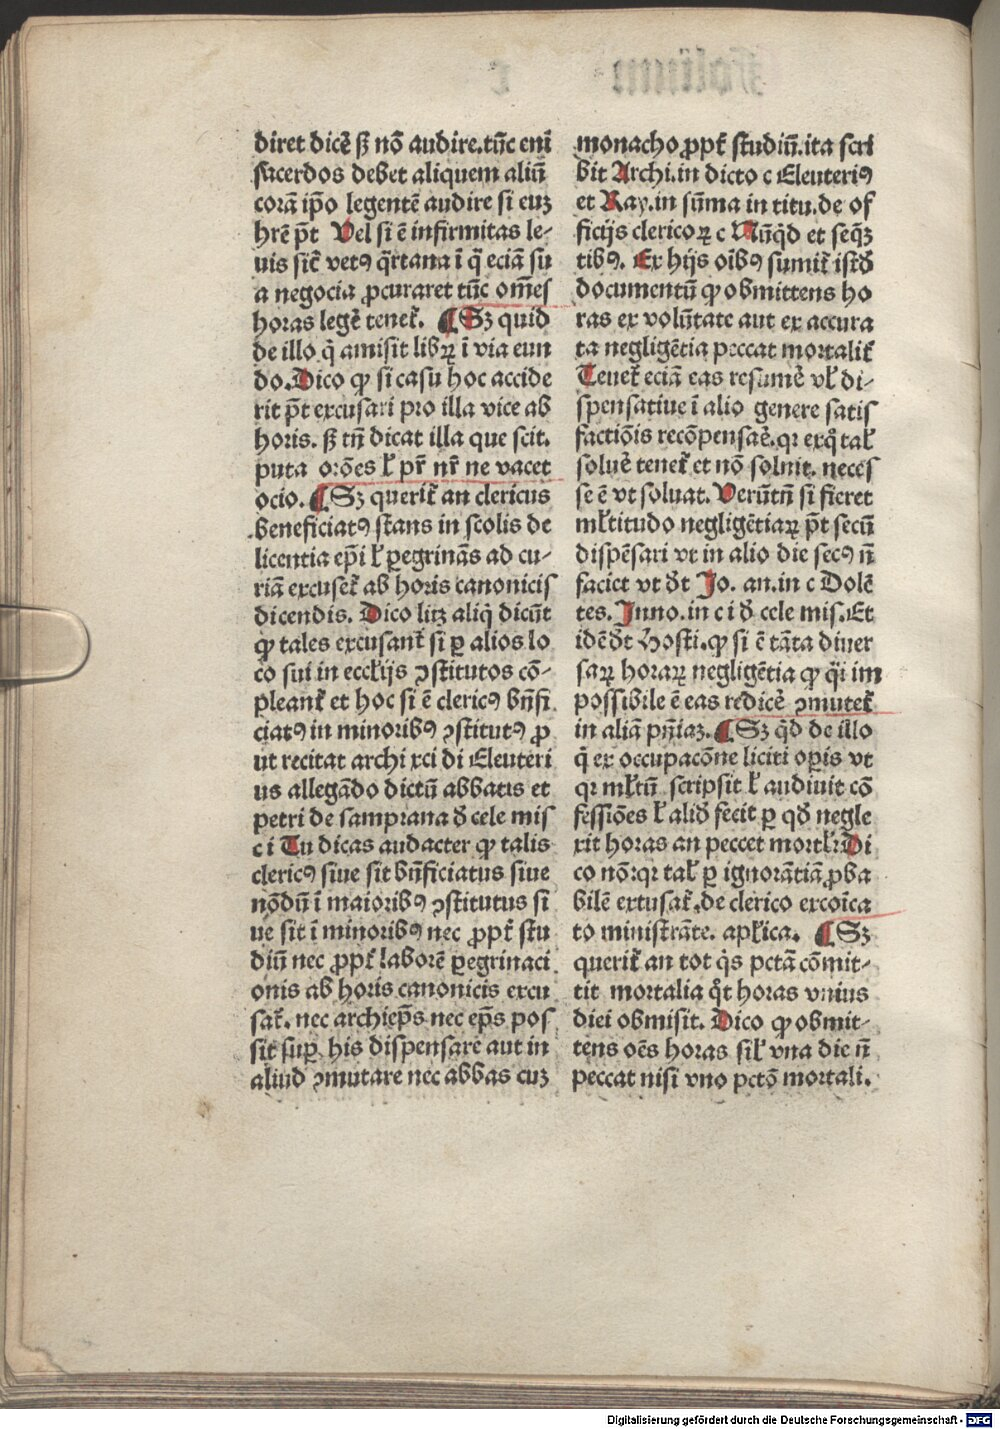 diret dicē ꝭ nō audire.tūc eni
sacerdos debet aliquem aliū
corā ip̄o legentē audire si euꝫ
hr̄e p̄t Vel si ē infirmitas le-
uis sic̄ vetꝰ q̄rtana ī q̄ eciā su
a negocia ꝓcuraret tūc om̄es
horas legē tenet̄. ¶ Sꝫ quid
de illo q̇ amisit libꝝ ī via eun
do.Dico ꝙ si casu hoc accide
rit p̄t excusari pro illa vice ab
horis. ꝭ tn̄ dicat illa que scit.
puta or̄oes ł pr̄ nr̄ ne vacet
ocio. ¶ Sꝫ querit̄ an clericus
beneficiatꝰ stans in scolis de
licentia ep̄i ł ꝑegrinās ad cu-
riā excuset̄ ab horis canonicis
dicendis. Dico litꝫ aliq̇ dicūt
ꝙ tales excusant̄ si ꝑ alios lo
co sui in eccłijs ꝯstitutos cō-
pleant̄ et hoc si ē clericꝰ bn̄fi
ciatꝰ in minoribꝰ ꝯstitutꝰ ꝓ
ut recitat archi xci di Eleuteri
us allegādo dictū abbatis et
petri de samprana ð cele mis
c i Tu dicas audacter ꝙ talis
clericꝰ siue sit bn̄ficiatus siue
nōdū ī maioribꝰ ꝯstitutus si
ue sit ī minoribꝰ nec ꝓpt̄ stu
diū nec ꝓpt̄ laborē ꝑegrinaci
onis ab horis canonicis excu
sat̄. nec archiep̄s nec ep̄s pos
sit suꝑ his dispensare aut in
aliud ꝯmutare nec abbas cuꝫ
monacho ꝓpt̄ studiū.ita scri
bit Archi.in dicto c Eleuteriꝰ
et Ray.in sūma in titu.de of
ficijs clericoꝝ c Nūq̇d et seq̄ꝫ
tibꝰ. Ex hijs oībꝰ sumit̄ istð
documentū ꝙ obmittens ho
ras ex volūtate aut ex accura
ta negligētia peccat mortalit̄
Tenet̄ eciā eas resumē vł di-
spensatiue ī alio genere satis
factiōis recōpensaē.qꝛ exq̊ tał
soluē tenet̄ et nō soluit. neces
se ē vt soluat. Verūtn̄ si fieret
młtitudo negligētiaꝝ p̄t secū
dispēsari vt in alio die secꝰ n̄
faciet vt ðt Jo. an.in c Dolē
tes. Inno.in c i ð cele mis.Et
idē ðt Hosti.ꝙ si ē tāta diuer
saꝝ horaꝝ negligētia ꝙ q̇i im
possibile ē eas redicē ꝯmutet̄
in aliā pn̄iaꝫ. ¶ Sꝫ q̇d de illo
q̇ ex occupacōne liciti oꝑis vt
qꝛ młtū scripsit ł audiuit cō
fessiōes ł alið fecit ꝑ qð negle
xit horas an peccet mortłr:Di
co nō:qꝛ tał ꝑ ignorātiā ꝓba
bilē extusat̄.de clerico excoīca
to ministrāte. apłica. ¶ Sꝫ
querit̄ an tot q̇s pctā cōmit-
tit mortalia q̊t horas vnius
diei obmisit. Dico ꝙ obmit-
tens oēs horas sił vna die n̄
peccat nisi vno pctō mortali.
Digitalisierung gefördert durch die Deutsche Forschungsgemeinschaft - DFG